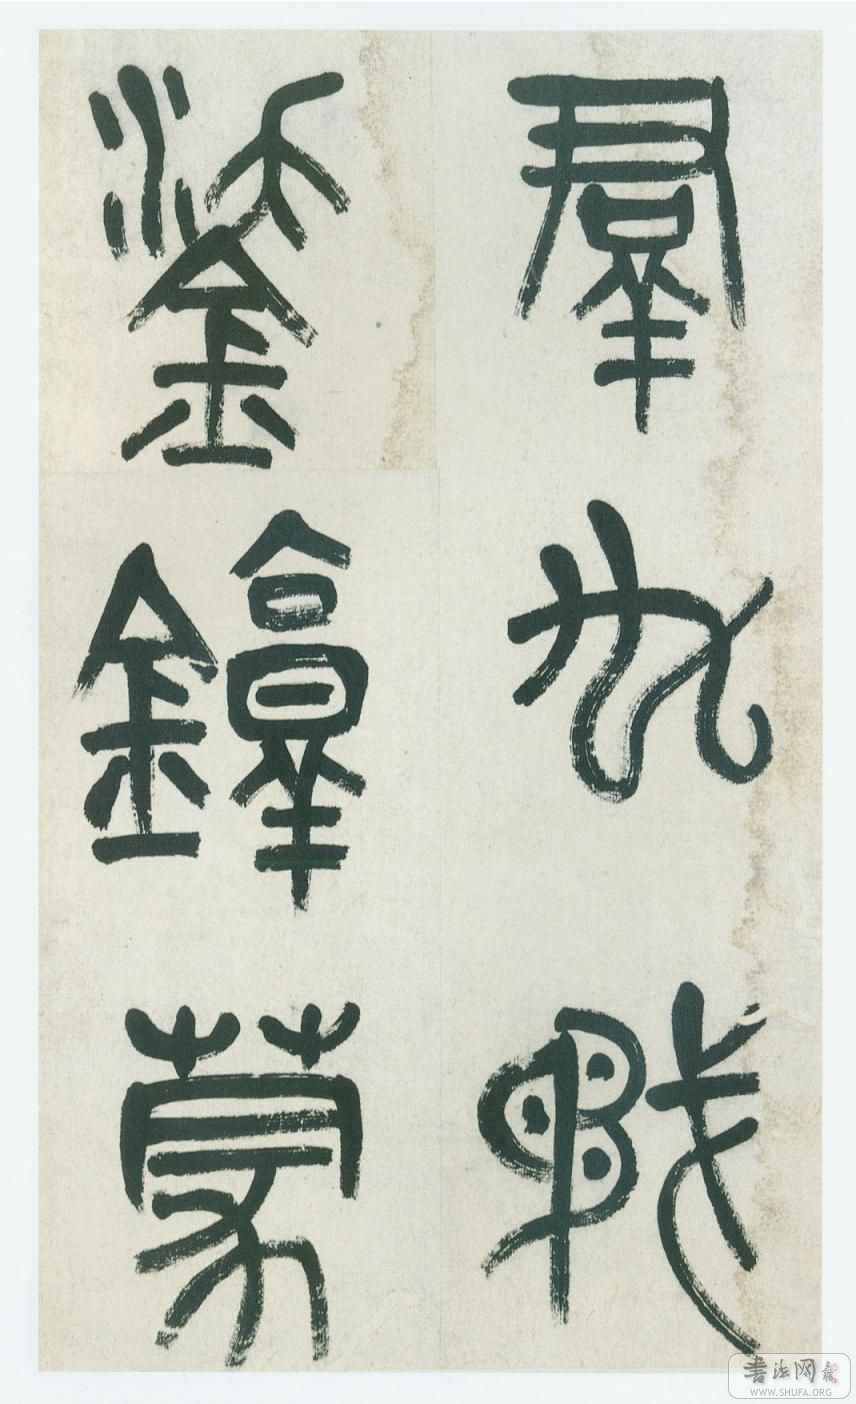 羣厹矛
鋈錞蒙
書法网
WWW.SHUFA.ORG